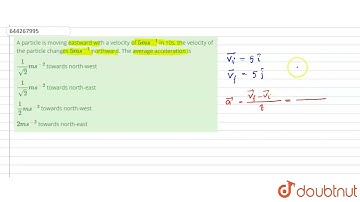 644267995
A particle is moving eastward with a velocity of 5ms⁻¹ in 10s, the velocity of
the particle changes 5ms⁻¹ northward. The average acceleration is
1/√2 ms⁻² towards north-west
1/√2 ms⁻² towards north-east
1/2 ms⁻² towards north-west
2ms⁻² towards north-east
v⃗ᵢ = 5 î
v⃗f = 5 ĵ
a⃗ = (v⃗f − v⃗ᵢ)/t =
doubtnut